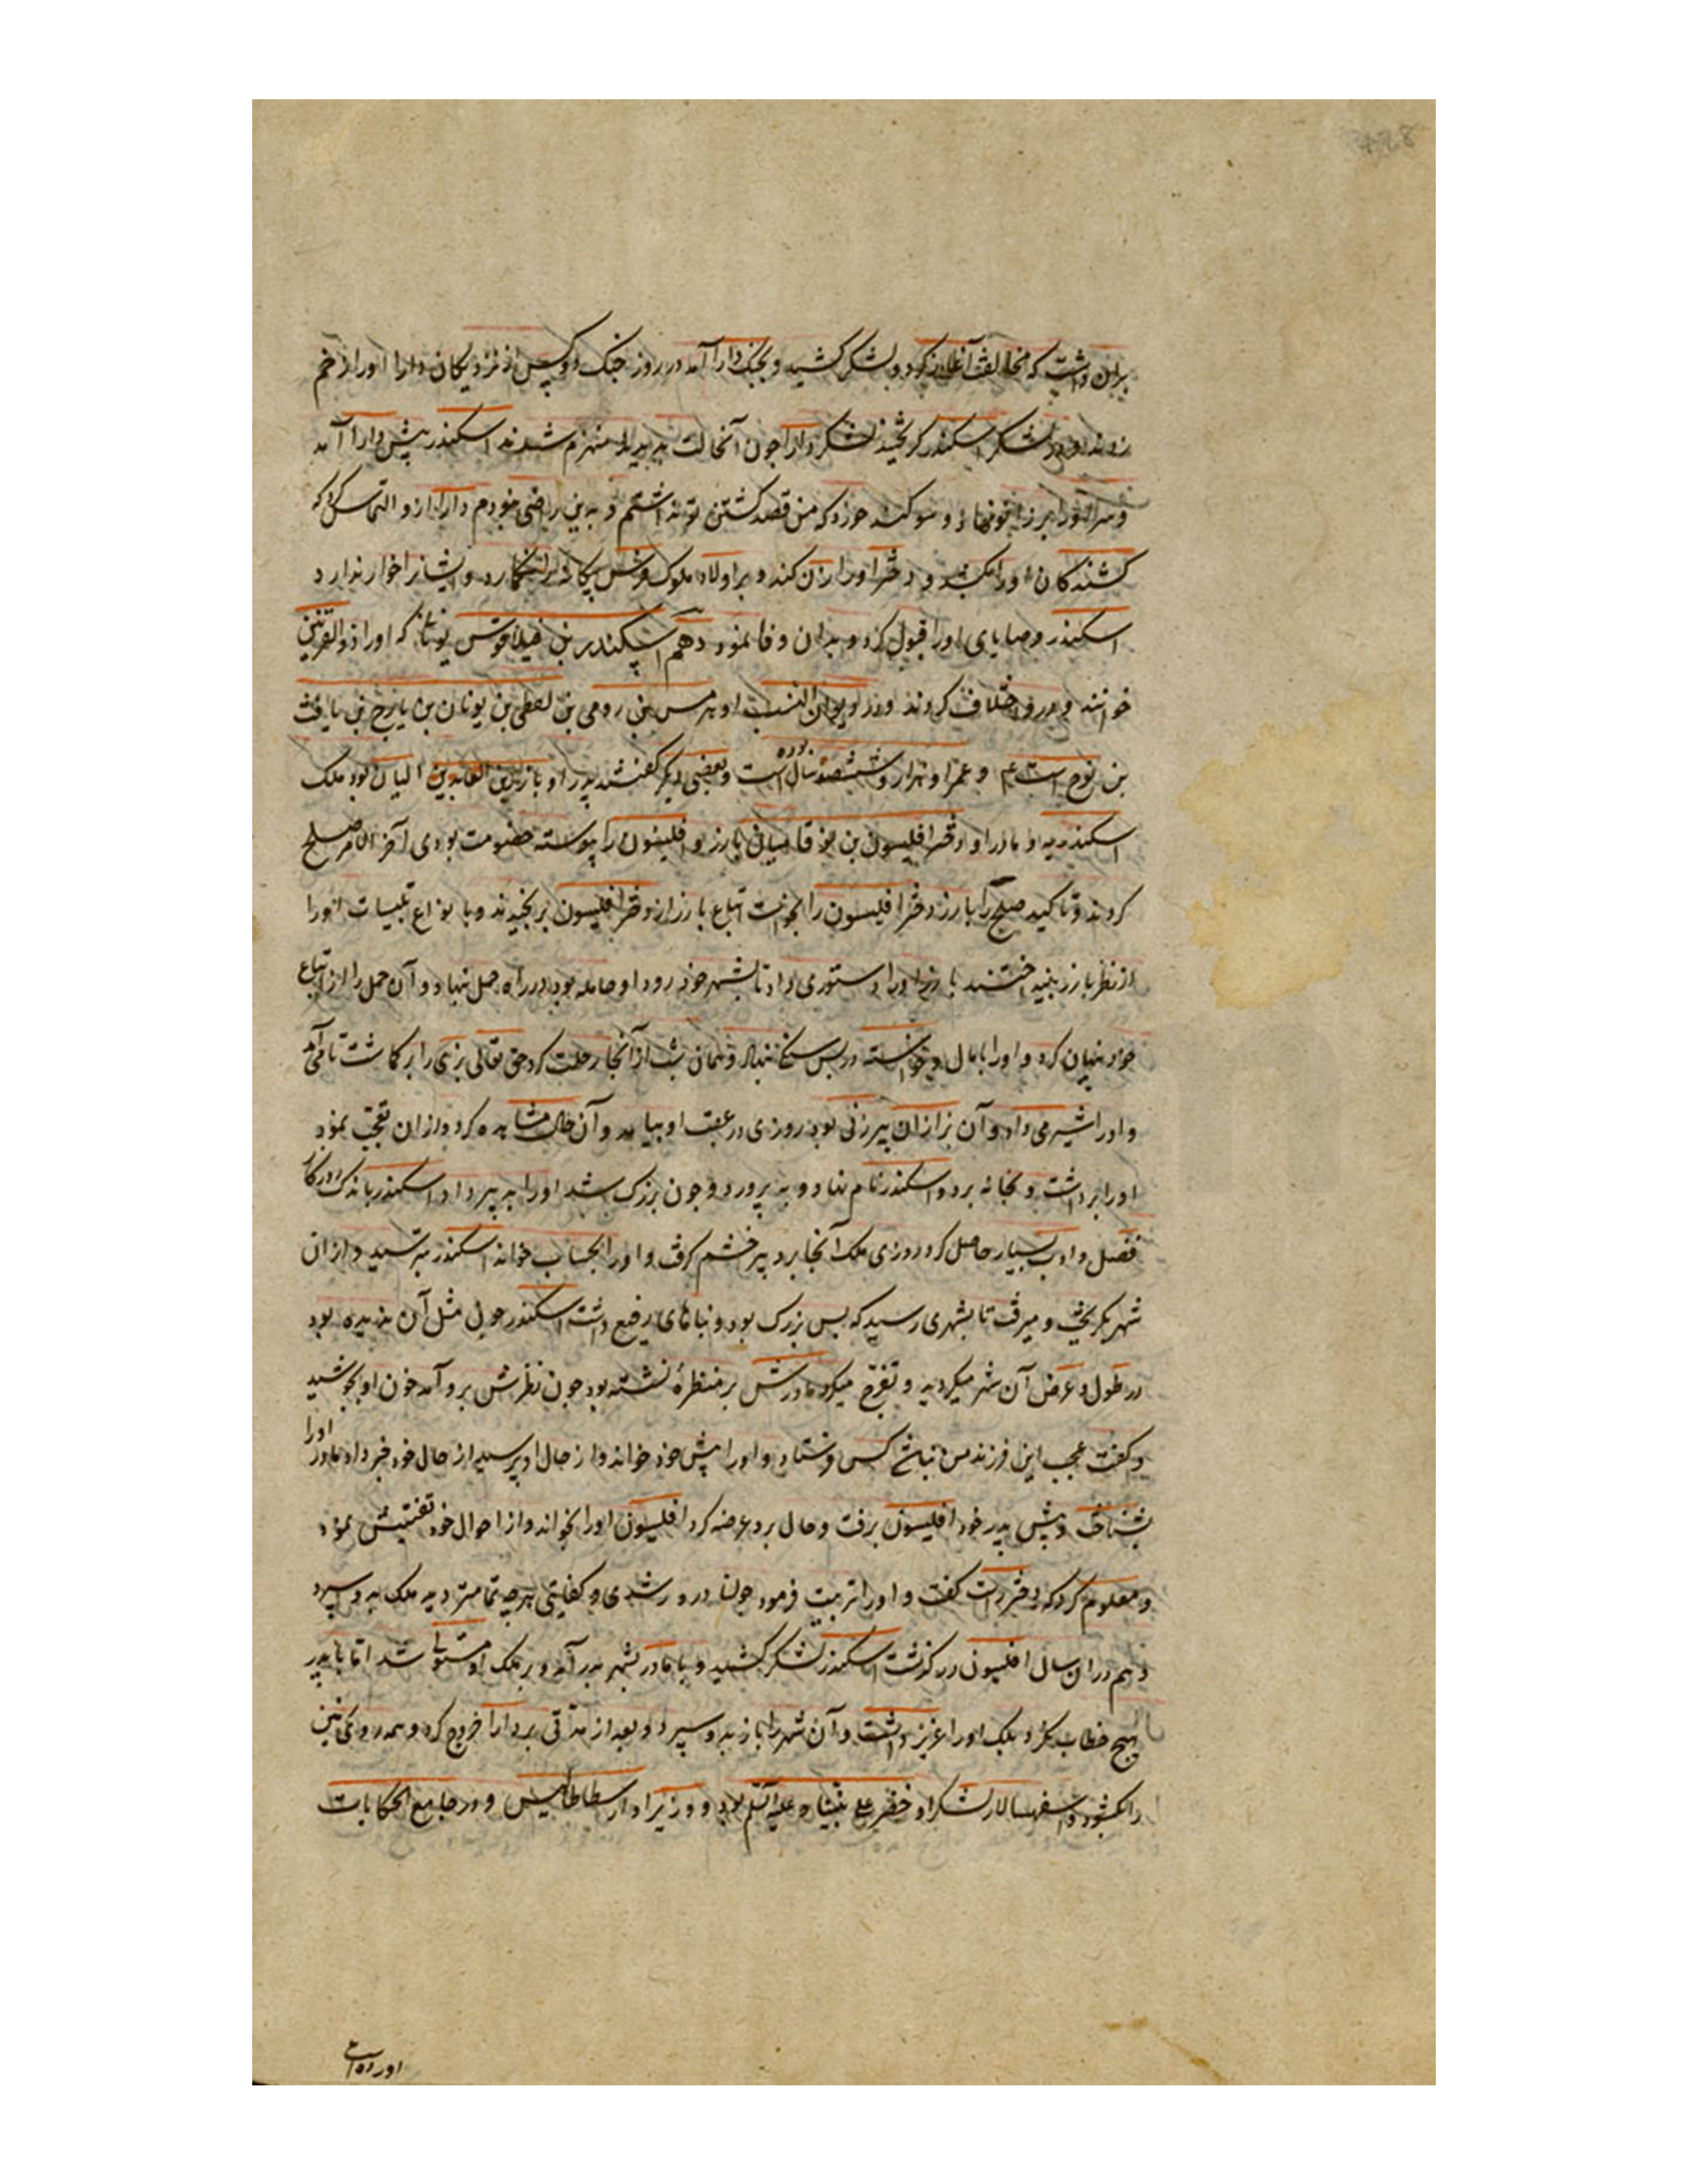 بران داشت که مخالفت آغاز کرد و لشکر کشید و بجنک دارا آمد در روز جنک دو کس از نزدیکان دارا اورا زخم
زدند و در لشکر اسکندر کریختند لشکر دارا چون آنحالت بدیدند منهزم شدند اسکندر پیش دارا آمد
و سر اورا بر زانو نهاد و سوکند خورد که من قصد کشتن تو نداشتم و بدین راضی نبودم دارا ازو التماس کرد که
کشندکان اورا بکشد و دختر اورا زن کند و بر اولاد ملوک فرس بیکانه را نکمارد و ایشانرا خوار ندارد
اسکندر وصایای اورا قبول کرد و بدان وفا نمود دهم اسکندر بن فیلاقوس یونانی که اورا ذوالقرنین
خوانند و درو اختلاف کردند او هرمس بن رومی بن لعطی بن یونان بن یارخ بن یافث
بن نوح است عم و عمر او هزار و ششصد سال بوده است و بعضی دیکر کفتند پدر او بارز بن البان بود ملک
اسکندریه و مادر او دختر افلیسون بن یوقا میان بارز و افلیسون را پیوسته خصومت بودی آخر الامر صلح
کردند و تاکید صلح را بارز دختر افلیسون را بخواست اتباع بارز از دختر افلیسون برنجیدند و با نواع تلبیسات اورا
از نظر بارز بینداختند بارز اورا دستوری داد تا بشهر خود رود او حامله بود در راه حمل نهاد و آن حمل را از اتباع
خود پنهان کرد و اورا با مال و خواسته در پس سنکی بنهاد و همان شب از آنجا رحلت کرد حق تعالی بزی را بر کماشت تا می آمد
و اورا شیر می داد و آن بز ازان پیرزنی بود روزی در عقب او بیامد و آن حال مشاهده کرد و ازان تعجب نمود
اورا برداشت و بخانه برد و اسکندر نام نهاد و به پرورد و چون بزرک شد اورا به پیر داد اسکندر باندک روزکار
فضل و ادب بسیار حاصل کرد روزی ملک آنجا برد پیر خشم کرفت و اورا بحساب خواند اسکندر بترسید و ازان
شهر بکریخت و میرفت تا بشهری رسید که بس بزرک بود و بناهای رفیع داشت اسکندر چون مثل آن ندیده بود
در طول و عرض آن شهر میکردید و تفرج میکرد مادرش بر منظره نشسته بود چون نظرش برو آمد خون او بجوشید
و کفت عجب این فرزند من نباشد کس فرستاد و اورا پیش خود خواند و از حال او پرسید از حال خود خبر داد مادر اورا
بشناخت و پیش پدر خود افلیسون برفت و حال برو عرضه کرد افلیسون اورا بخواند و از احوال خود تفتیش نمود
و معلوم کرد که دختر راست کفت و اورا تربیت فرمود چونان درو رشدی و کفایتی هرچه تمامتر دید ملک بدو سپرد
و هم دران سال افلیسون درکذشت اسکندر لشکر کشید و با مادر بشهر پدر آمد و بر ملک او مستولی شد اما با پدر
هیچ خطاب نکرد بلک اورا عزیز داشت و آن شهر را باز بدو سپرد و بعد از مدتی بر دارا خروج کرد و همه روی زمین
را بکشود و سفهسالار لشکر او خضر علی نبینا و علیه السلم بود و وزیر او ارسطاطالیس و در جامع الحکایات
اورده است